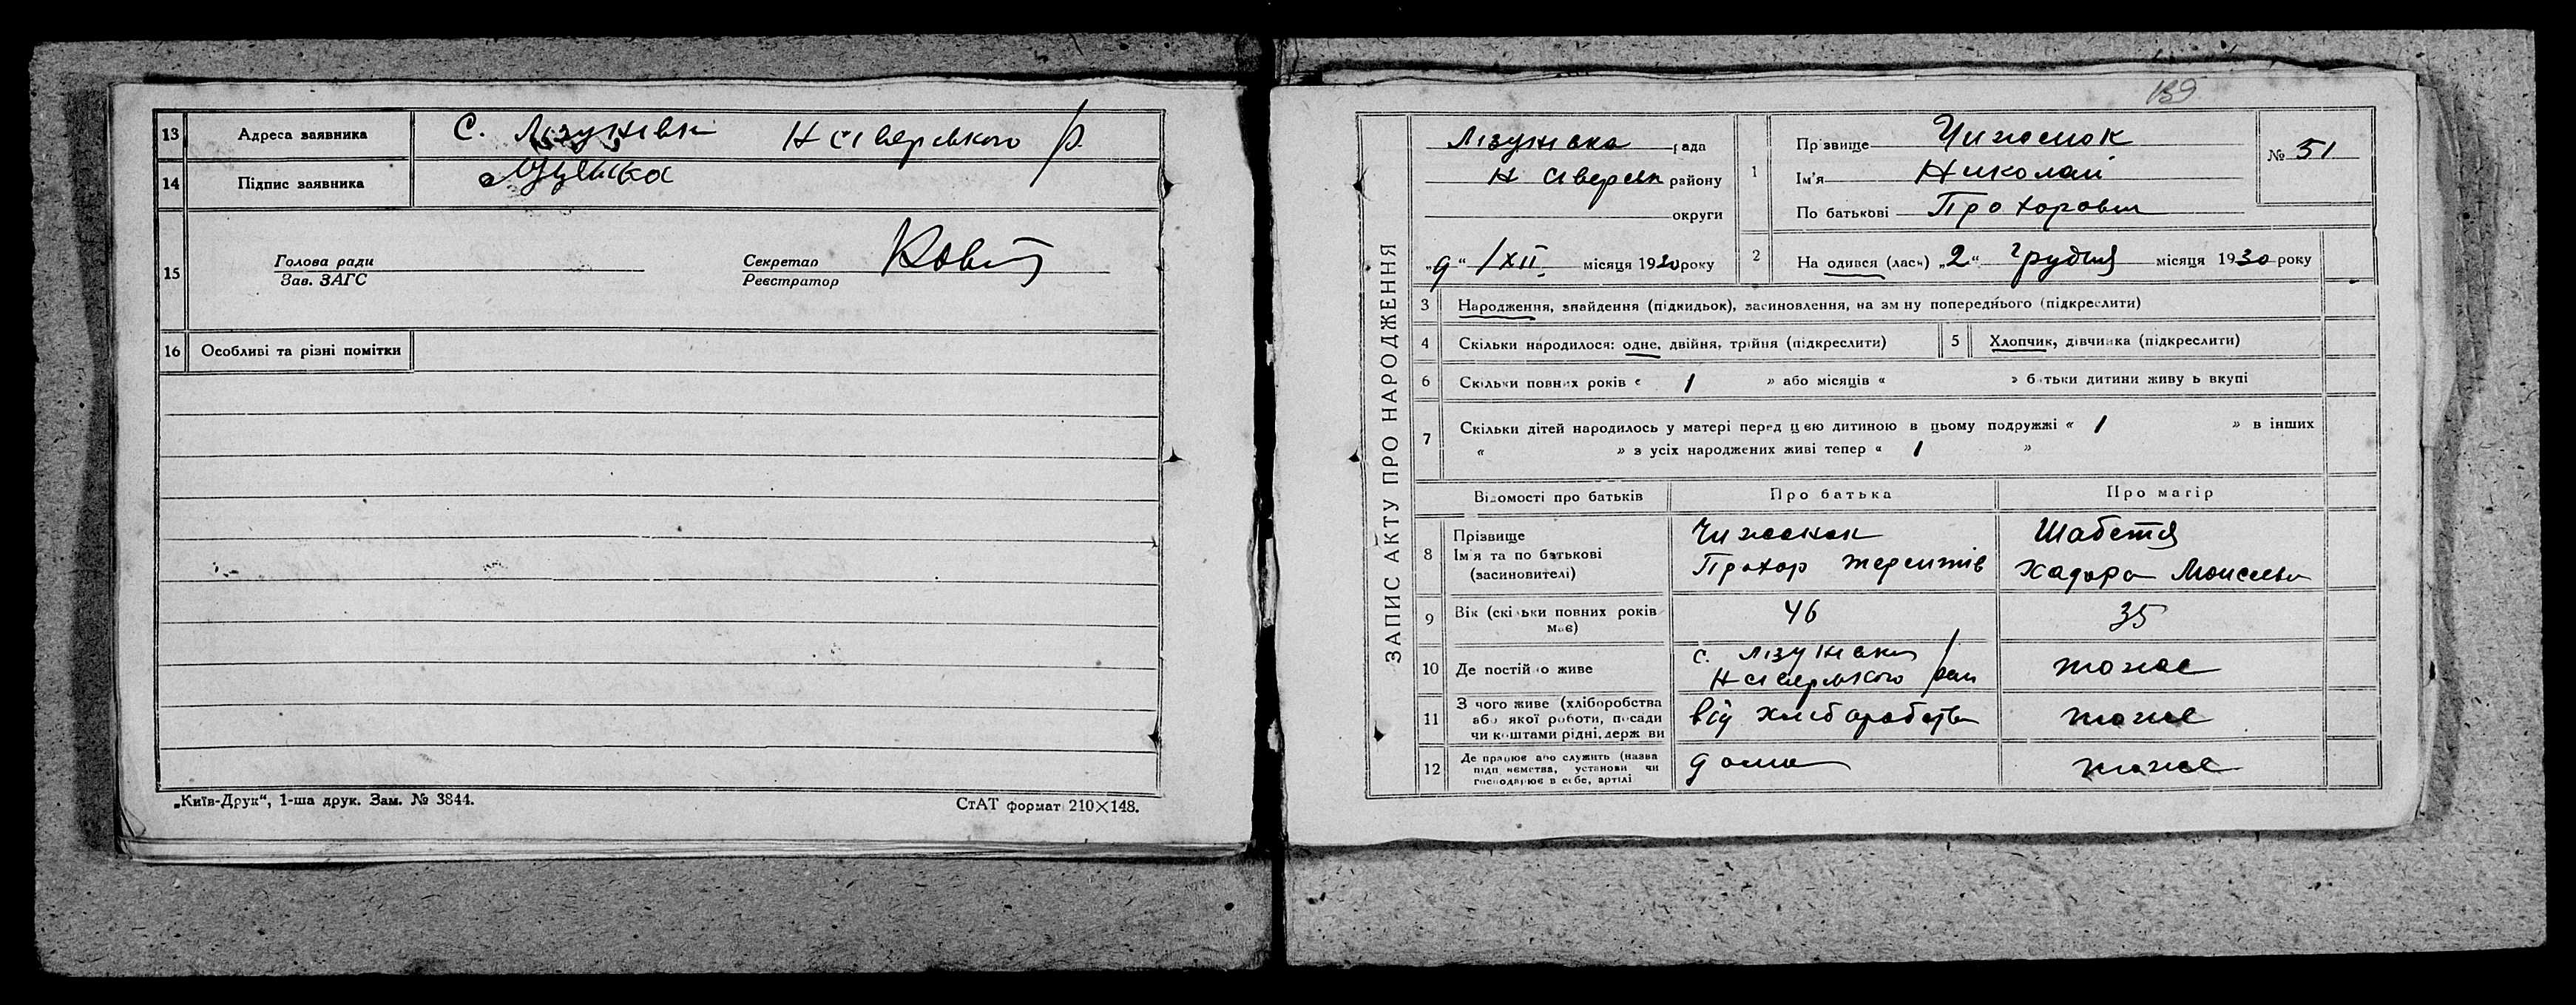 13 Адреса заявника С. Лізунівка Н Сіверського р.
14 Підпис заявника
15 Голова ради
Зав. ЗАГС
Секретар
Реєстратор
16 Особливі та різні помітки
„Київ-Друк“, 1-ша друк. Зам. № 3844.
СтАТ формат 210×148.
139
ЗАПИС АКТУ ПРО НАРОДЖЕННЯ
Лізунівка рада
Н Сіверськ району
округи
„9“ /XII місяця 1930 року
1 Прізвище Чижонок
Ім'я Николай
По батькові Прохорович
№ 51
2 Народився (лась) „2“ Грудня місяця 1930 року
3 Народження, знайдення (підкидьок), засиновлення, на зміну попереднього (підкреслити)
4 Скільки народилося: одне, двійня, трійня (підкреслити) 5 Хлопчик, дівчинка (підкреслити)
6 Скільки повних років « 1 » або місяців « » батьки дитини живуть вкупі
7 Скільки дітей народилось у матері перед цією дитиною в цьому подружжі « 1 » в інших
« » з усіх народжених живі тепер « 1 »
Відомості про батьків Про батька Про матір
8 Прізвище Чижонок Шабетя
Ім'я та по батькові Прохор Терентів Хадора Моисеевн
(засиновителі)
9 Вік (скільки повних років має) 46 35
10 Де постійно живе с. Лізунівка тоже
Н Сіверського рай
11 З чого живе (хліборобства або якої роботи, посади чи коштами рідні, держави від хліборобства тоже
12 Де працює або служить (назва підприємства, установи чи господарює в себе, артілі дома тоже